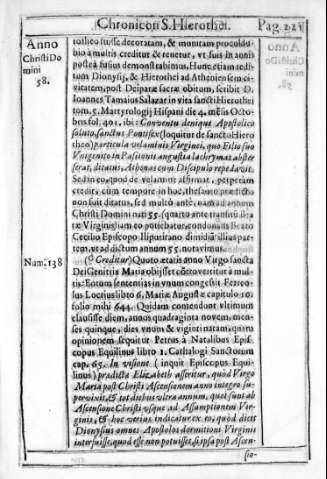 Chronicon S. Hierothei. Pag. 221
Anno
Christi Do
mini
58.
rotheo fuisse decoratam, & munitam proculdu-
bio à multis creditur & renetur, vt suis in annis
postea fusius demonstrabimus. Hunc etiam redi-
tum Dionysij, & Hierothei ad Atheniensem ci-
vitatem, post Deiparæ sacræ obitum, scribit D.
Ioannes Tamaius Salazar in vita sancti Hierothei
tom. 5. Martyrologij Hispani die 4. mensis Octo-
bris fol. 401. ibi: Conventu denique Apostolico
soluto, sanctus Pontifex (loquitur de sancto Hiero
theo) particula velaminis Virginei, quo Filio suo
Vnigenito in Pasionis angustia lachrymas abster
serat, ditatus, Athenas cum Discipulo repedavit.
Sed in eo, quod de velamine affirmat, perperam
credit; cum tempore in hoc, thesauro prædicto
non fuit ditatus, sed multo ante, nam ad annum
Christi Domini nati 55. (quarto ante transitū Bea
tæ Virginis) iam eo potiebatur, condonans Beato
Cecilio Episcopo Illipuritano dimidiā illius par-
tem, vt ad dictum annum 55. notavimus.
Num. 138
(Creditur) Quoto ætatis anno Virgo sancta
Dei Genitrix Maria obijsset cōtrovertitur à mul-
tis: Eorum sententias in vnum congessit Ferreo-
lus Locrius libro 6. Mariæ Augustæ capitulo 10.
folio mihi 644. Quidam contendunt vltimum
clausisse diem, annos quadraginta novem, men-
ses quinque, dies vnum & viginti natam, quam
opinionem sequitur Petrus à Natalibus Epis-
copus Equilinus libro 1. Cathalogi Sanctorum
cap. 65. In visione (inquit Episcopus Equi-
linus) prædicta Elizabeth asseritur, quod Virgo
Maria post Christi Ascensionem anno integro su-
pervixit, & tot diebus vltra annum, quot sunt ab
Ascensione Christi vsque ad Assumptionem Vir-
ginis, & hoc verius indicatur ex eo, quod dicit
Dionysius omnes Apostolos dormitioni Virginis
interfuisse, quod esse non potuisset, si ipsa post Ascen-
sio-